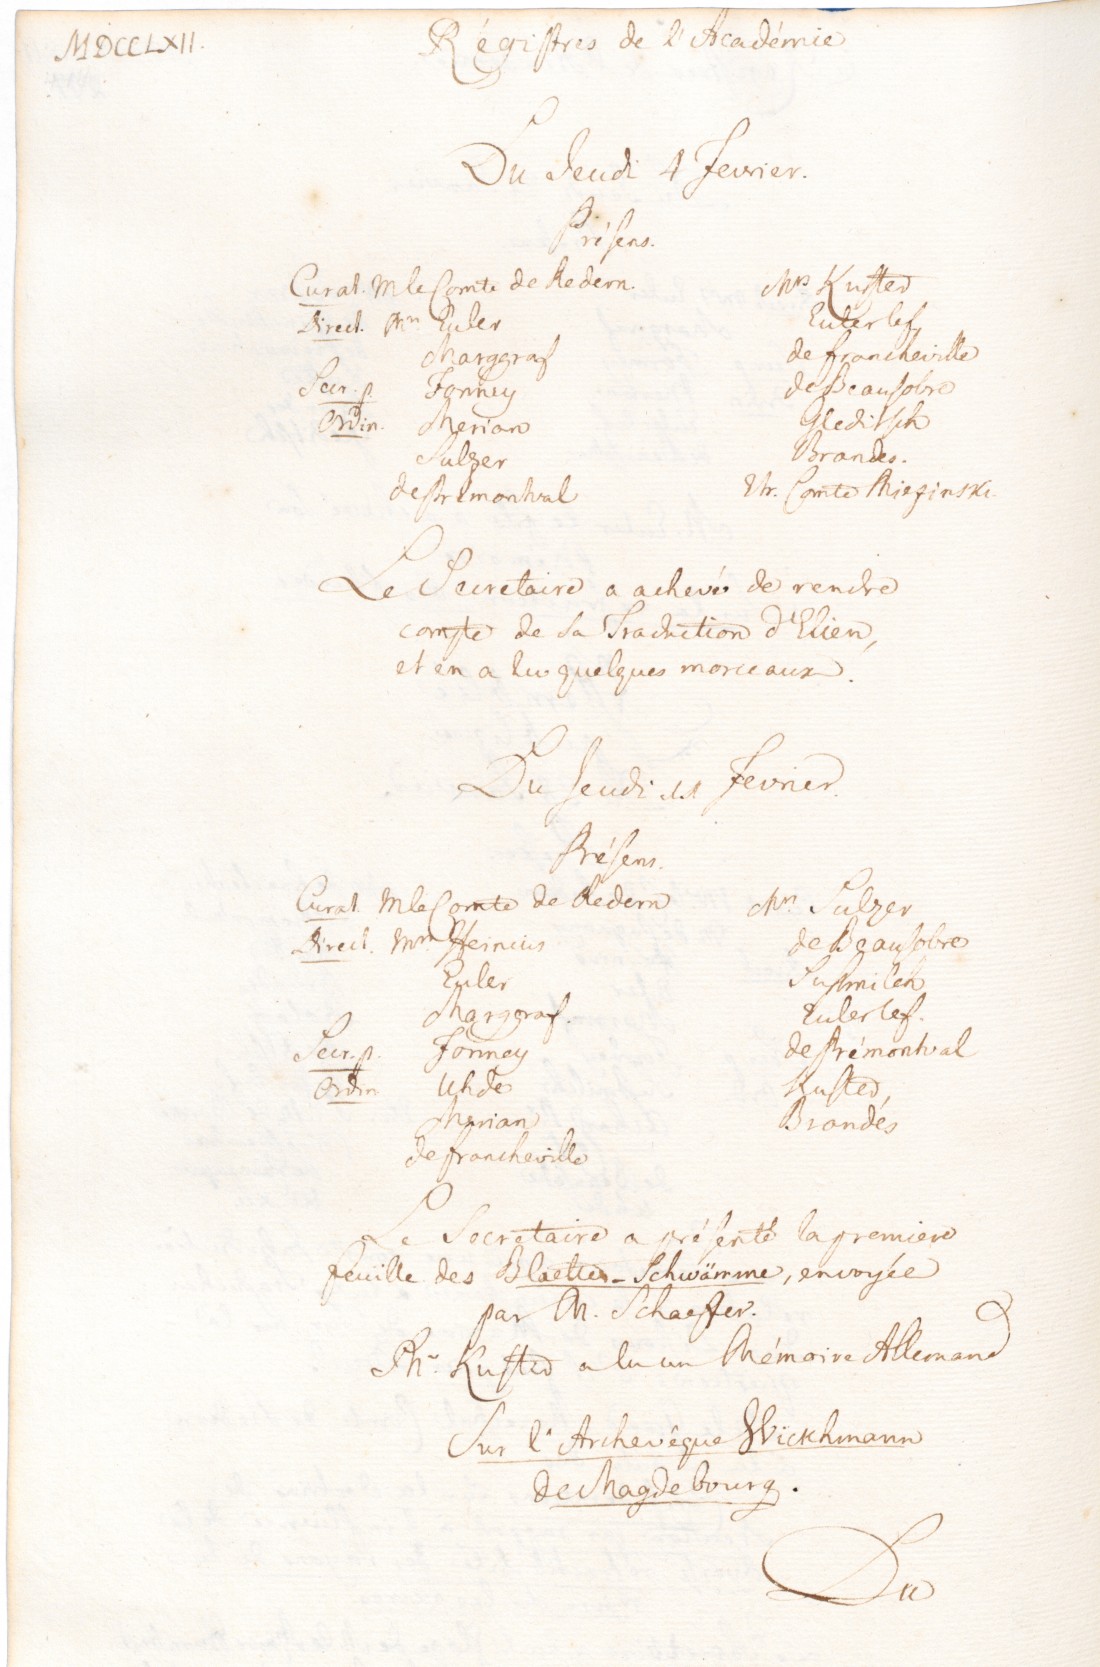 MDCCLXII.
Régistres de l'Académie
Du Jeudi 4 Fevrier.
Présens.
Curat. M le Comte de Redern.
Direct. Mrs Euler
Marggraf
Secr. p. Formey
Ordin. Merian
Sulzer
de Prémontval
Mrs Kuster
Euler le f.
de Francheville
de Beausobre
Gleditsch
Brandes.
Etr. Comte
Le Secretaire a achevé de rendre
compte de sa Traduction d'Elien,
et en a lu quelques morceaux.
Du Jeudi 11 Fevrier.
Présens.
Curat. M le Comte de Redern
Direct. Mrs Heinius
Euler
Marggraf.
Secr. p. Formey
Ordin Uhde
Merian
de Francheville
Mrs Sulzer
de Beausobre
Susmilch
Euler le f.
de Prémontval
Kuster,
Brandes
Le Secretaire a présenté la premiere
feuille des Blaetter-Schwämme, envoyée
par M. Schaeffer.
Mr Kuster a lu un Mémoire Allemand
Sur l'Archevêque Wickhmann
de Magdebourg.
Du